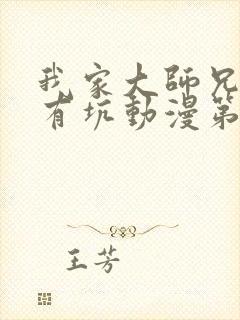 我家大師兄
有坑動漫第
王芳